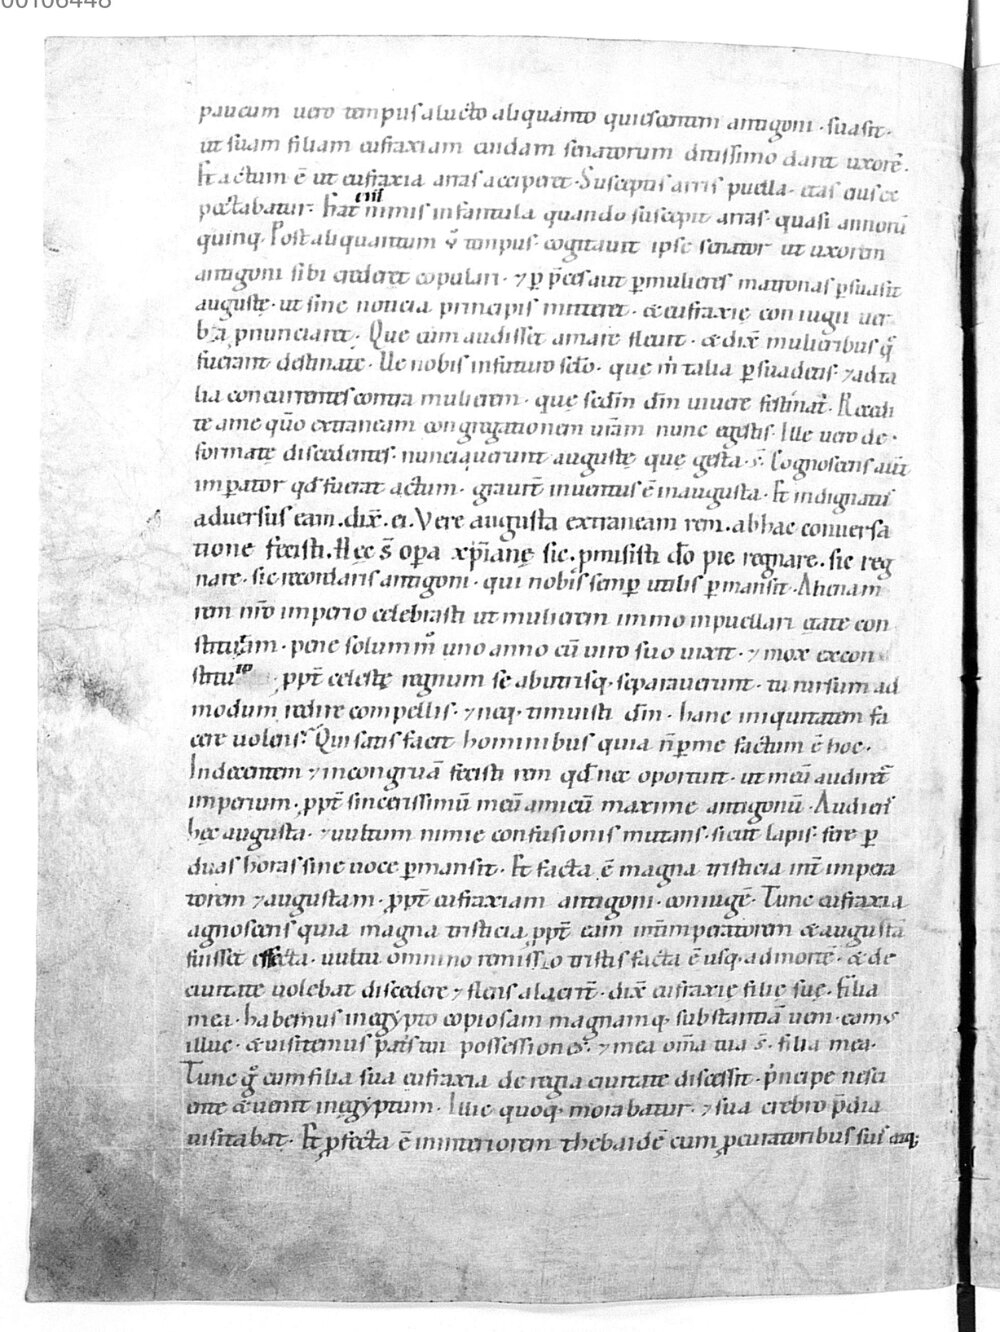 00106448
paucum uero tempus a luc̄to aliquanto quiescentem antigoni · suasit ·
ut suam filiam eufraxiam cuidam senatorum ditissimo daret uxorē .
Factum ē ut eufraxia arras acciperet · Susceptis arris puella · etas eius ex
pectabatur · Erat enī nimis infantula quando suscepit arras · quasi annorū
quinq · Post aliquantum v̊ tempus · cogitauit ipse senator ut uxorem
antigoni sibi crederet copulari · ⁊ ꝑ p̄ces aut ꝑ mulieres matronas ꝑsuasit
augustę · ut sine noticia principis mitteret · & eufraxię coniugii uer
ba ꝓnunciaret · Que cum audisset amare fleuit · & dix̄ mulieribus q̄
fuerant destinate · Ue nobis in futuro sc̄lo · quę m̄ talia ꝑsuadetis · ⁊ ad ta
lia concurrentes contra mulierem · quę scd̄m dm̄ uiuere festinat̄ · Recedi
te a me qm̄o extraneam congregationem ur̄am nunc egistis · Ille uero de ·
formatę discedentes · nunciauerunt augustę que gesta · s̄ · Cognoscens aūt
imꝑator qd̄ fuerat actum · grauit̄ inuentus ē in augusta · Et indignatus
aduersus eam . dix̄ . ei . Vere augusta extraneam rem . ab hac conuersa
tione fecisti . Hęc s̄ oꝑa xp̄ianę sic . ꝓmisisti dō pie regnare . sic reg
nare · sic recordaris antigoni · qui nobis semꝑ utilis ꝑmansit · Alienam
rem nr̄o imperio celebrasti ut mulierem immo in puellari etate con
stitutam · pene solum m̊ uno anno cū uiro suo uixit · ⁊ mox ex con
stitu to ꝓpt̄ celestę regnum se ab utrisq · separauerunt · tu rursum ad
modum redire compellis · ⁊ neq · timuisti dm̄ · hanc iniquitatem fa
cere uolens · Qui satis faciet hominibus quia n̄ ꝑ me factum ē hoc ·
Indecentem ⁊ incongruā fecisti rem qd̄ nec oportuit · ut meū audiret
imperium · ꝓpt̄ sincerissimū meū amicū maxime antigonū · Audiens
hęc augusta · ⁊ uultum nimie confusionis mutans · sicut lapis · fere ꝑ
duas horas sine uoce ꝑmansit · Et facta ē magna tristicia int̄ impera
torem ⁊ augustam · ꝓpt̄ eufraxiam antigoni · coniugē · Tunc eufraxia
agnoscens quia magna tristicia ꝓpt̄ eam int̄ imperatorem & augustā
fuisset effecta · uultu omnino remisso tristis facta ē usq · ad mortē · & de
ciuitate uolebat discedere ⁊ flens alacrit̄ · dix̄ eufraxię filię suę · Filia
mea · habemus in egypto copiosam magnamq · substantiā ueni · eams
illuc · & uisitemus patris tui possessiones · ⁊ mea om̄a tua s̄ · filia mea ·
Tunc g̊ cum filia sua eufraxia de regia ciuitate discessit · p̄ncipe nesci
ente & uenit in egyptum · Illic quoq · morabatur · ⁊ sua crebro p̄dia
uisitabat · Et ꝓfecta ē in interiorem thebaidē cum ꝓcuratoribus suis atq;